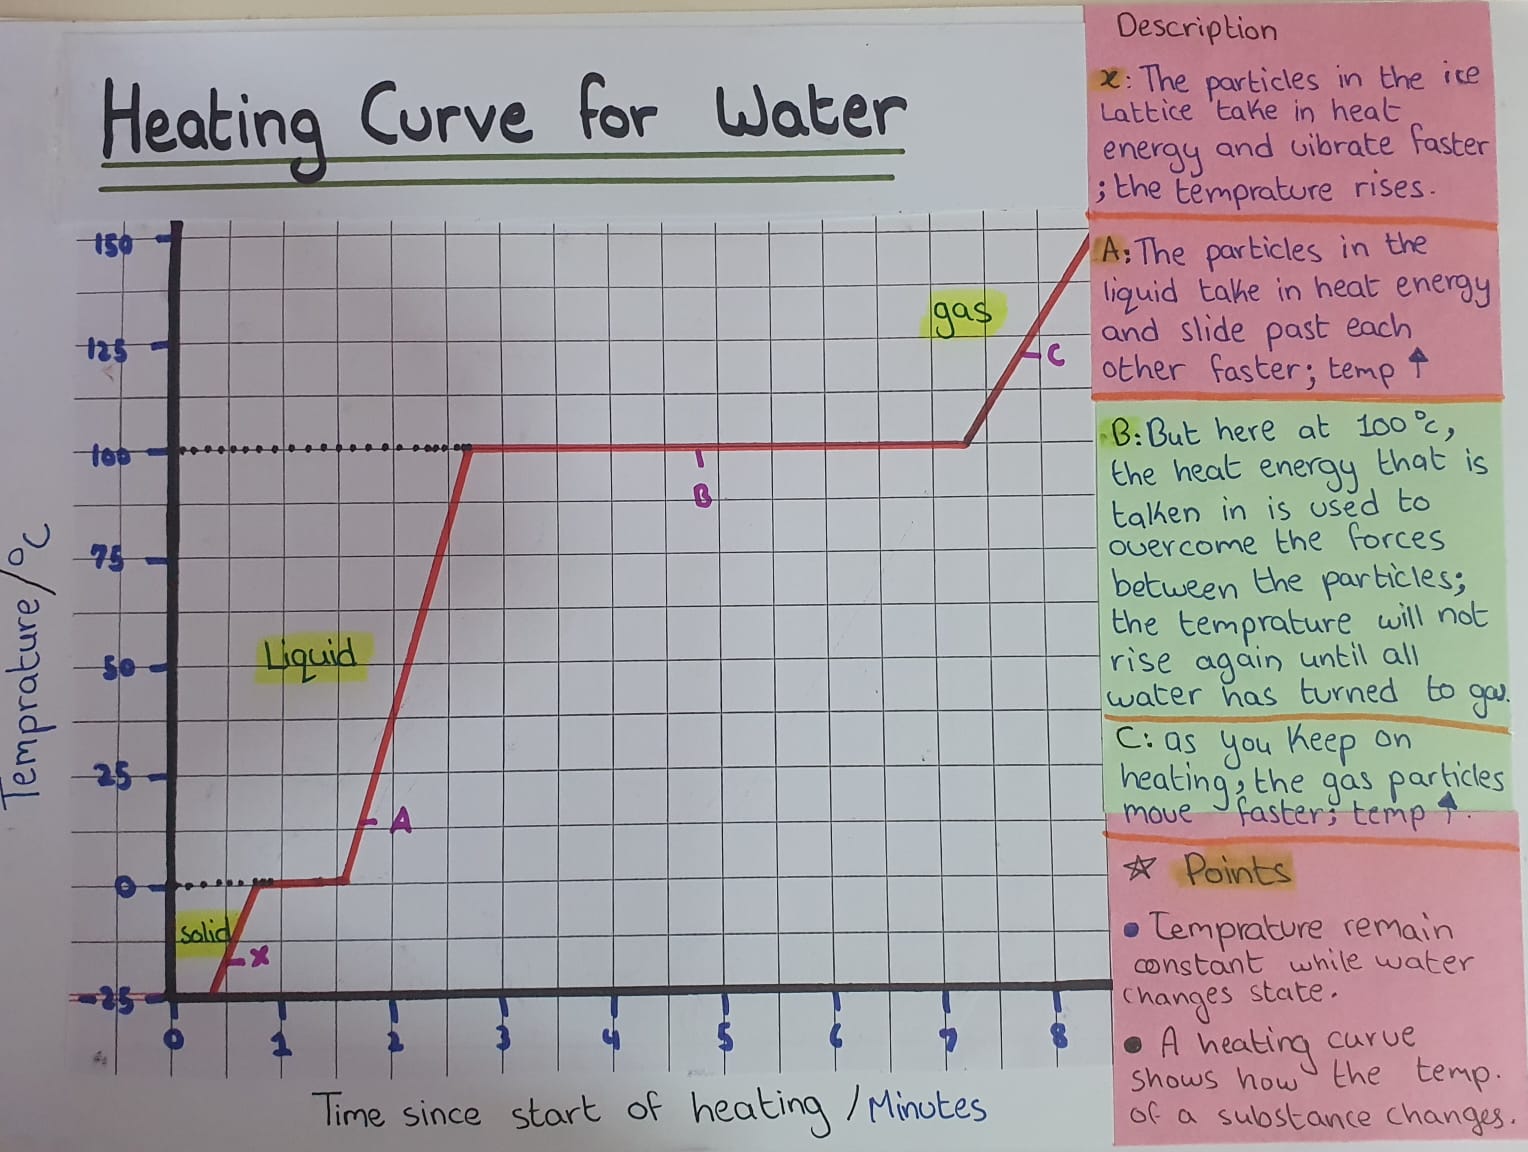 Heating Curve for Water
150
125
100
75
50
25
0
-25
Temprature/°C
0
1
2
3
4
5
6
7
8
Time since start of heating / Minutes
solid
Liquid
gas
x
A
B
C
Description
x: The particles in the ice
Lattice take in heat
energy and vibrate faster
; the temprature rises.
A: The particles in the
liquid take in heat energy
and slide past each
other faster; temp ↑
B: But here at 100°c,
the heat energy that is
taken in is used to
overcome the forces
between the particles;
the temprature will not
rise again until all
water has turned to gas.
C: as you Keep on
heating, the gas particles
move faster; temp ↑.
☆ Points
• Temprature remain
constant while water
changes state.
• A heating curve
shows how the temp.
of a substance changes.